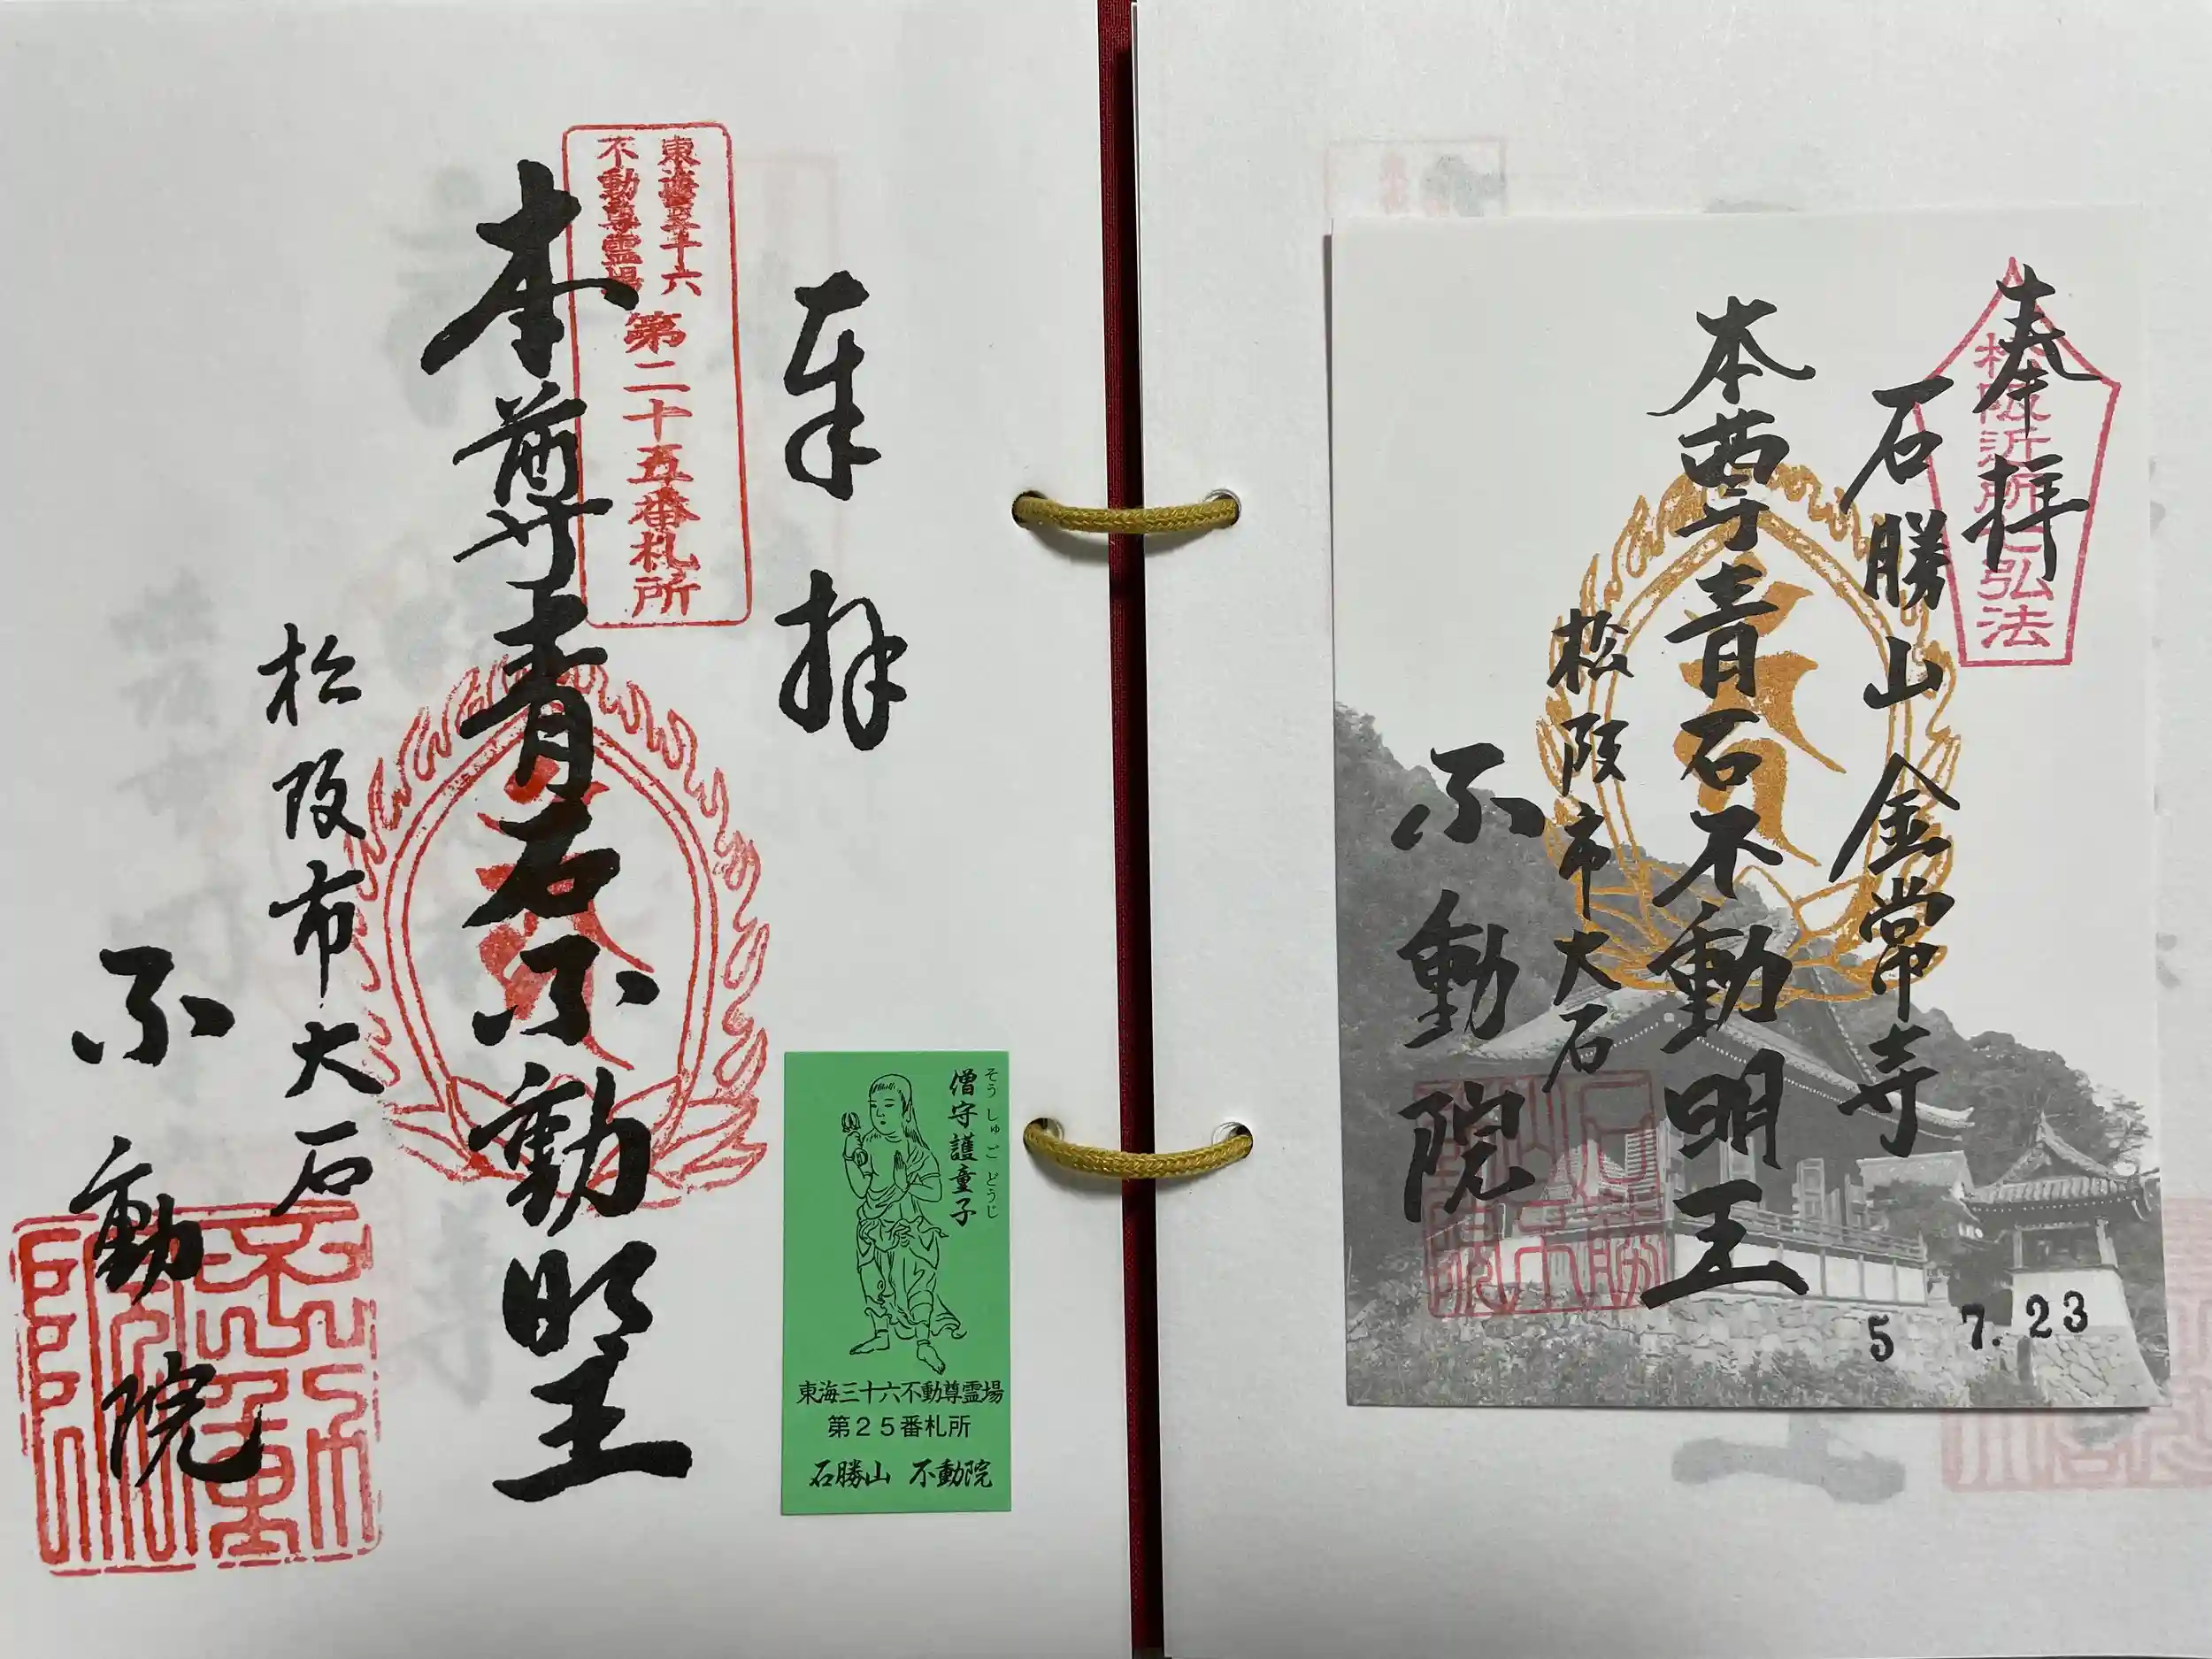 奉拝
石勝山 金常寺
本尊青石不動明王
松阪市大石
不動院
松阪近所弘法
5 7. 23
奉拝
東海三十六
不動尊霊場
第二十五番札所
本尊青石不動明王
松阪市大石
不動院
そうしゅごどうじ
僧守護童子
東海三十六不動尊霊場
第25番札所
石勝山 不動院